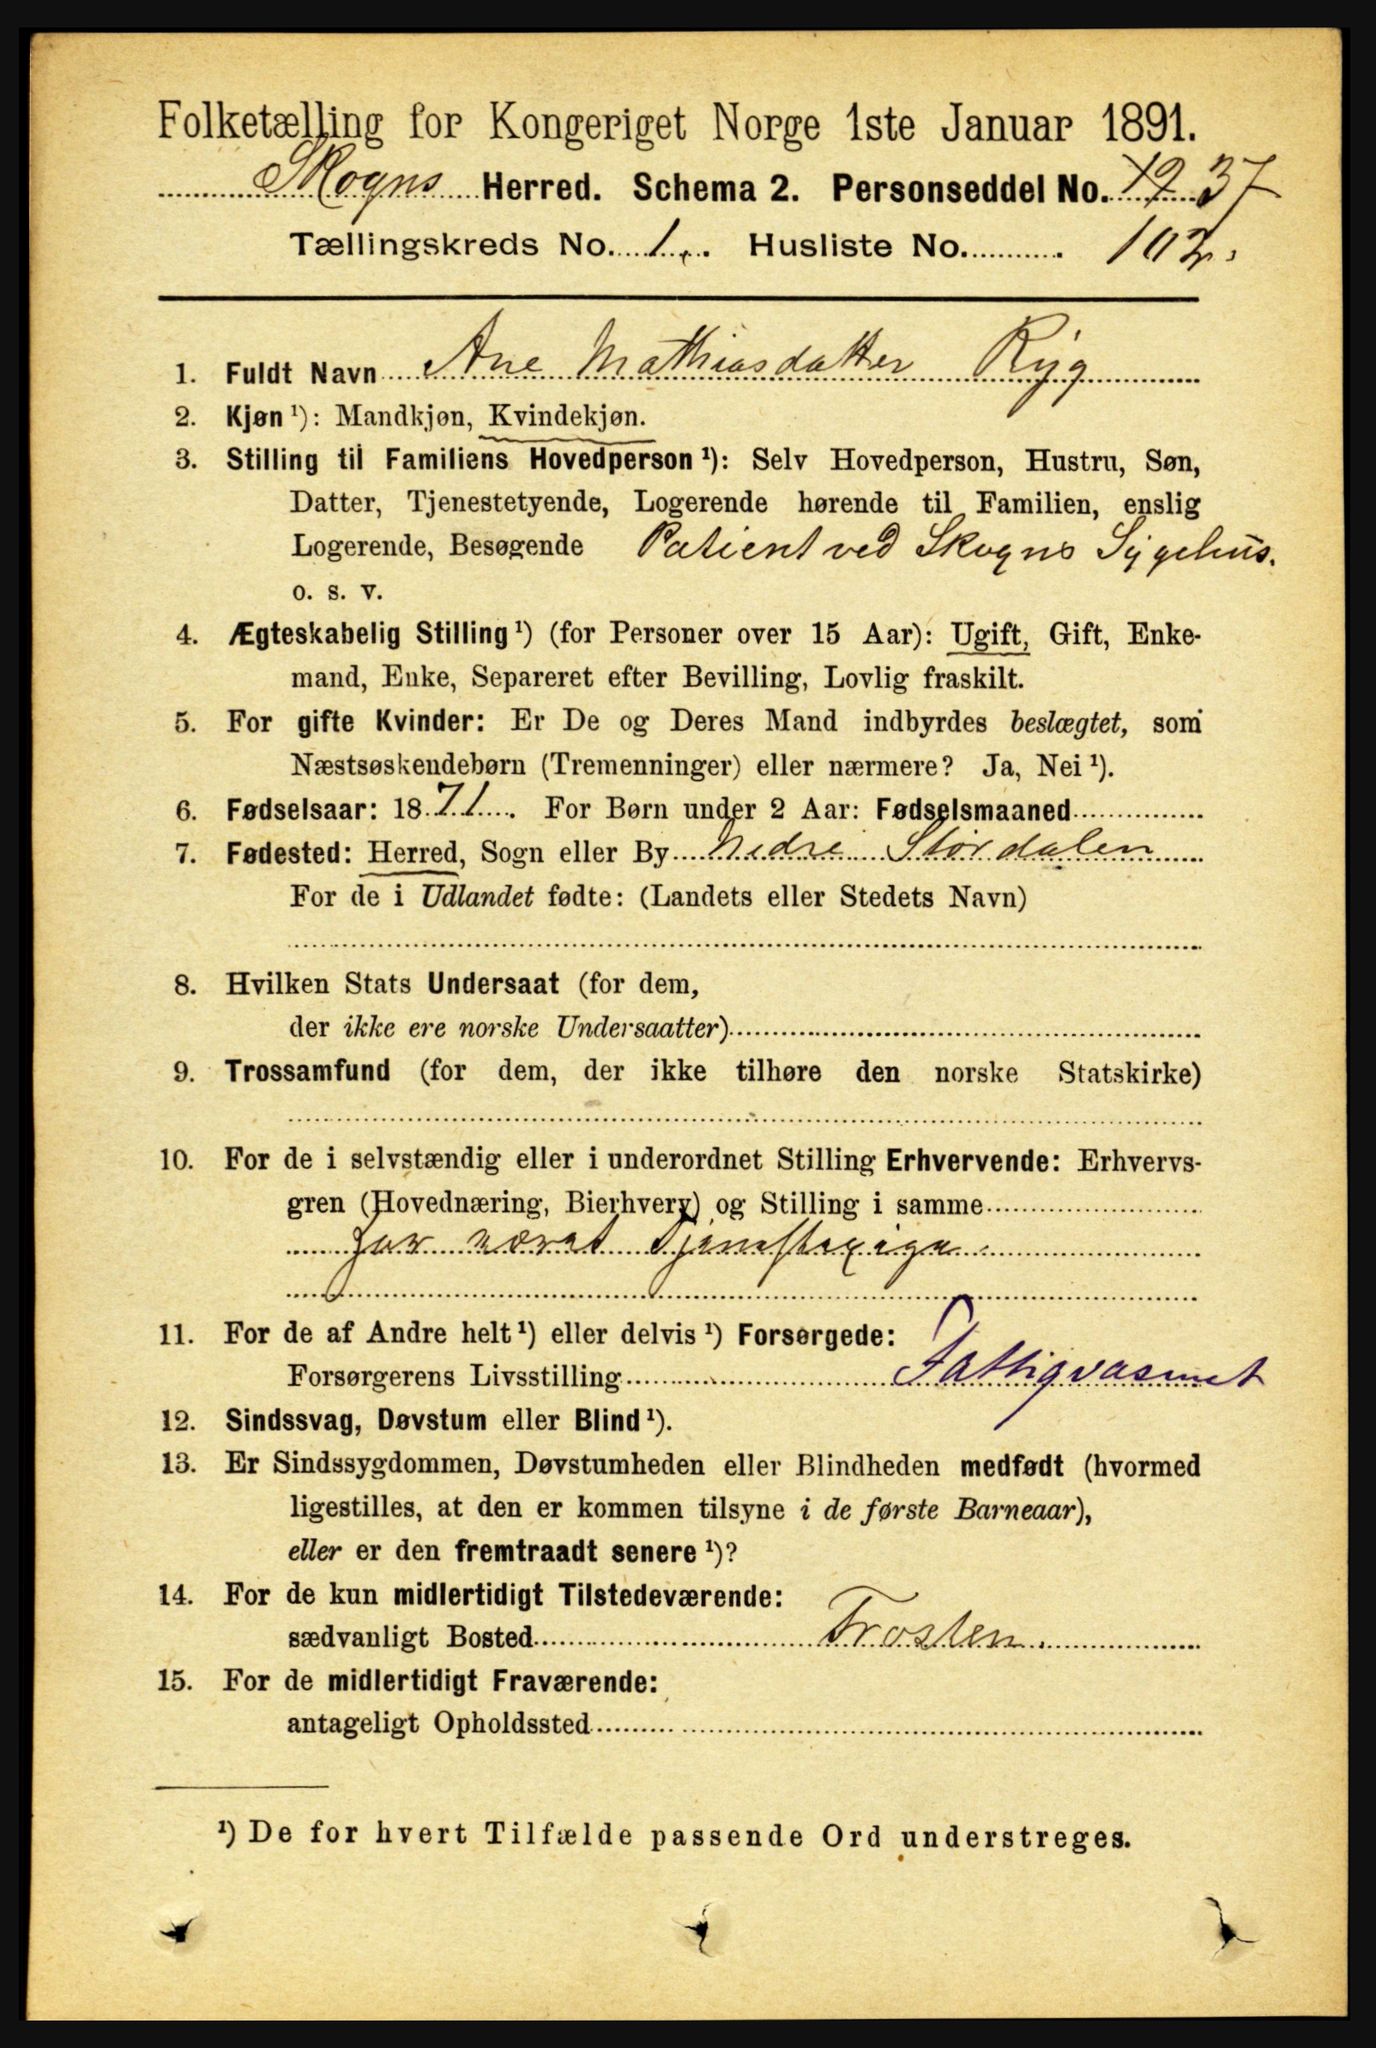 Folketælling for Kongeriget Norge 1ste Januar 1891.
Skogns Herred. Schema 2. Personseddel No. 37
Tællingskreds No. 1. Husliste No. 102.
1. Fuldt Navn Ane Mathiasdatter Ryg
2. Kjøn ¹): Mandkjøn, Kvindekjøn.
3. Stilling til Familiens Hovedperson ¹): Selv Hovedperson, Hustru, Søn,
Datter, Tjenestetyende, Logerende hørende til Familien, enslig
Logerende, Besøgende Patient ved Skogns Sygehus.
o. s. v.
4. Ægteskabelig Stilling ¹) (for Personer over 15 Aar): Ugift, Gift, Enke-
mand, Enke, Separeret efter Bevilling, Lovlig fraskilt.
5. For gifte Kvinder: Er De og Deres Mand indbyrdes beslægtet, som
Næstsøskendebørn (Tremenninger) eller nærmere? Ja, Nei ¹).
6. Fødselsaar: 1871. For Børn under 2 Aar: Fødselsmaaned
7. Fødested: Herred, Sogn eller By Nedre Størdalen
For de i Udlandet fødte: (Landets eller Stedets Navn)
8. Hvilken Stats Undersaat (for dem,
der ikke ere norske Undersaatter)
9. Trossamfund (for dem, der ikke tilhøre den norske Statskirke)
10. For de i selvstændig eller i underordnet Stilling Erhvervende: Erhvervs-
gren (Hovednæring, Bierhverv) og Stilling i samme
har været Tjenestepige.
11. For de af Andre helt ¹) eller delvis ¹) Forsørgede:
Forsørgerens Livsstilling Fattigvæsenet
12. Sindssvag, Døvstum eller Blind ¹).
13. Er Sindssygdommen, Døvstumheden eller Blindheden medfødt (hvormed
ligestilles, at den er kommen tilsyne i de første Barneaar),
eller er den fremtraadt senere ¹)?
14. For de kun midlertidigt Tilstedeværende:
sædvanligt Bosted Frosten.
15. For de midlertidigt Fraværende:
antageligt Opholdssted
¹) De for hvert Tilfælde passende Ord understreges.